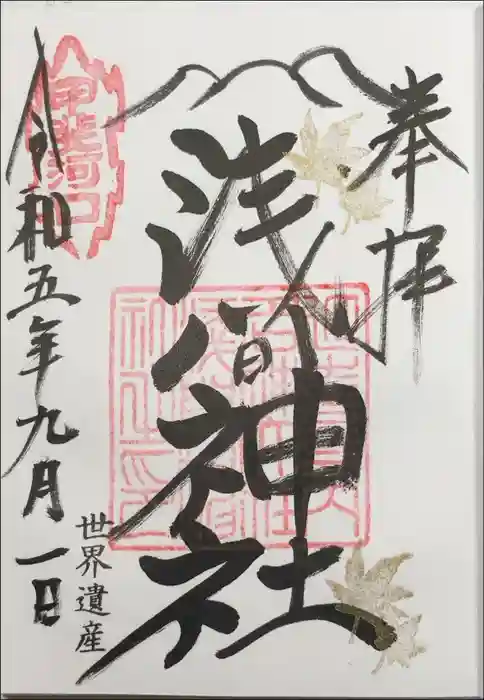 奉拝
浅間神社
令和五年九月一日
世界遺産
甲斐河口